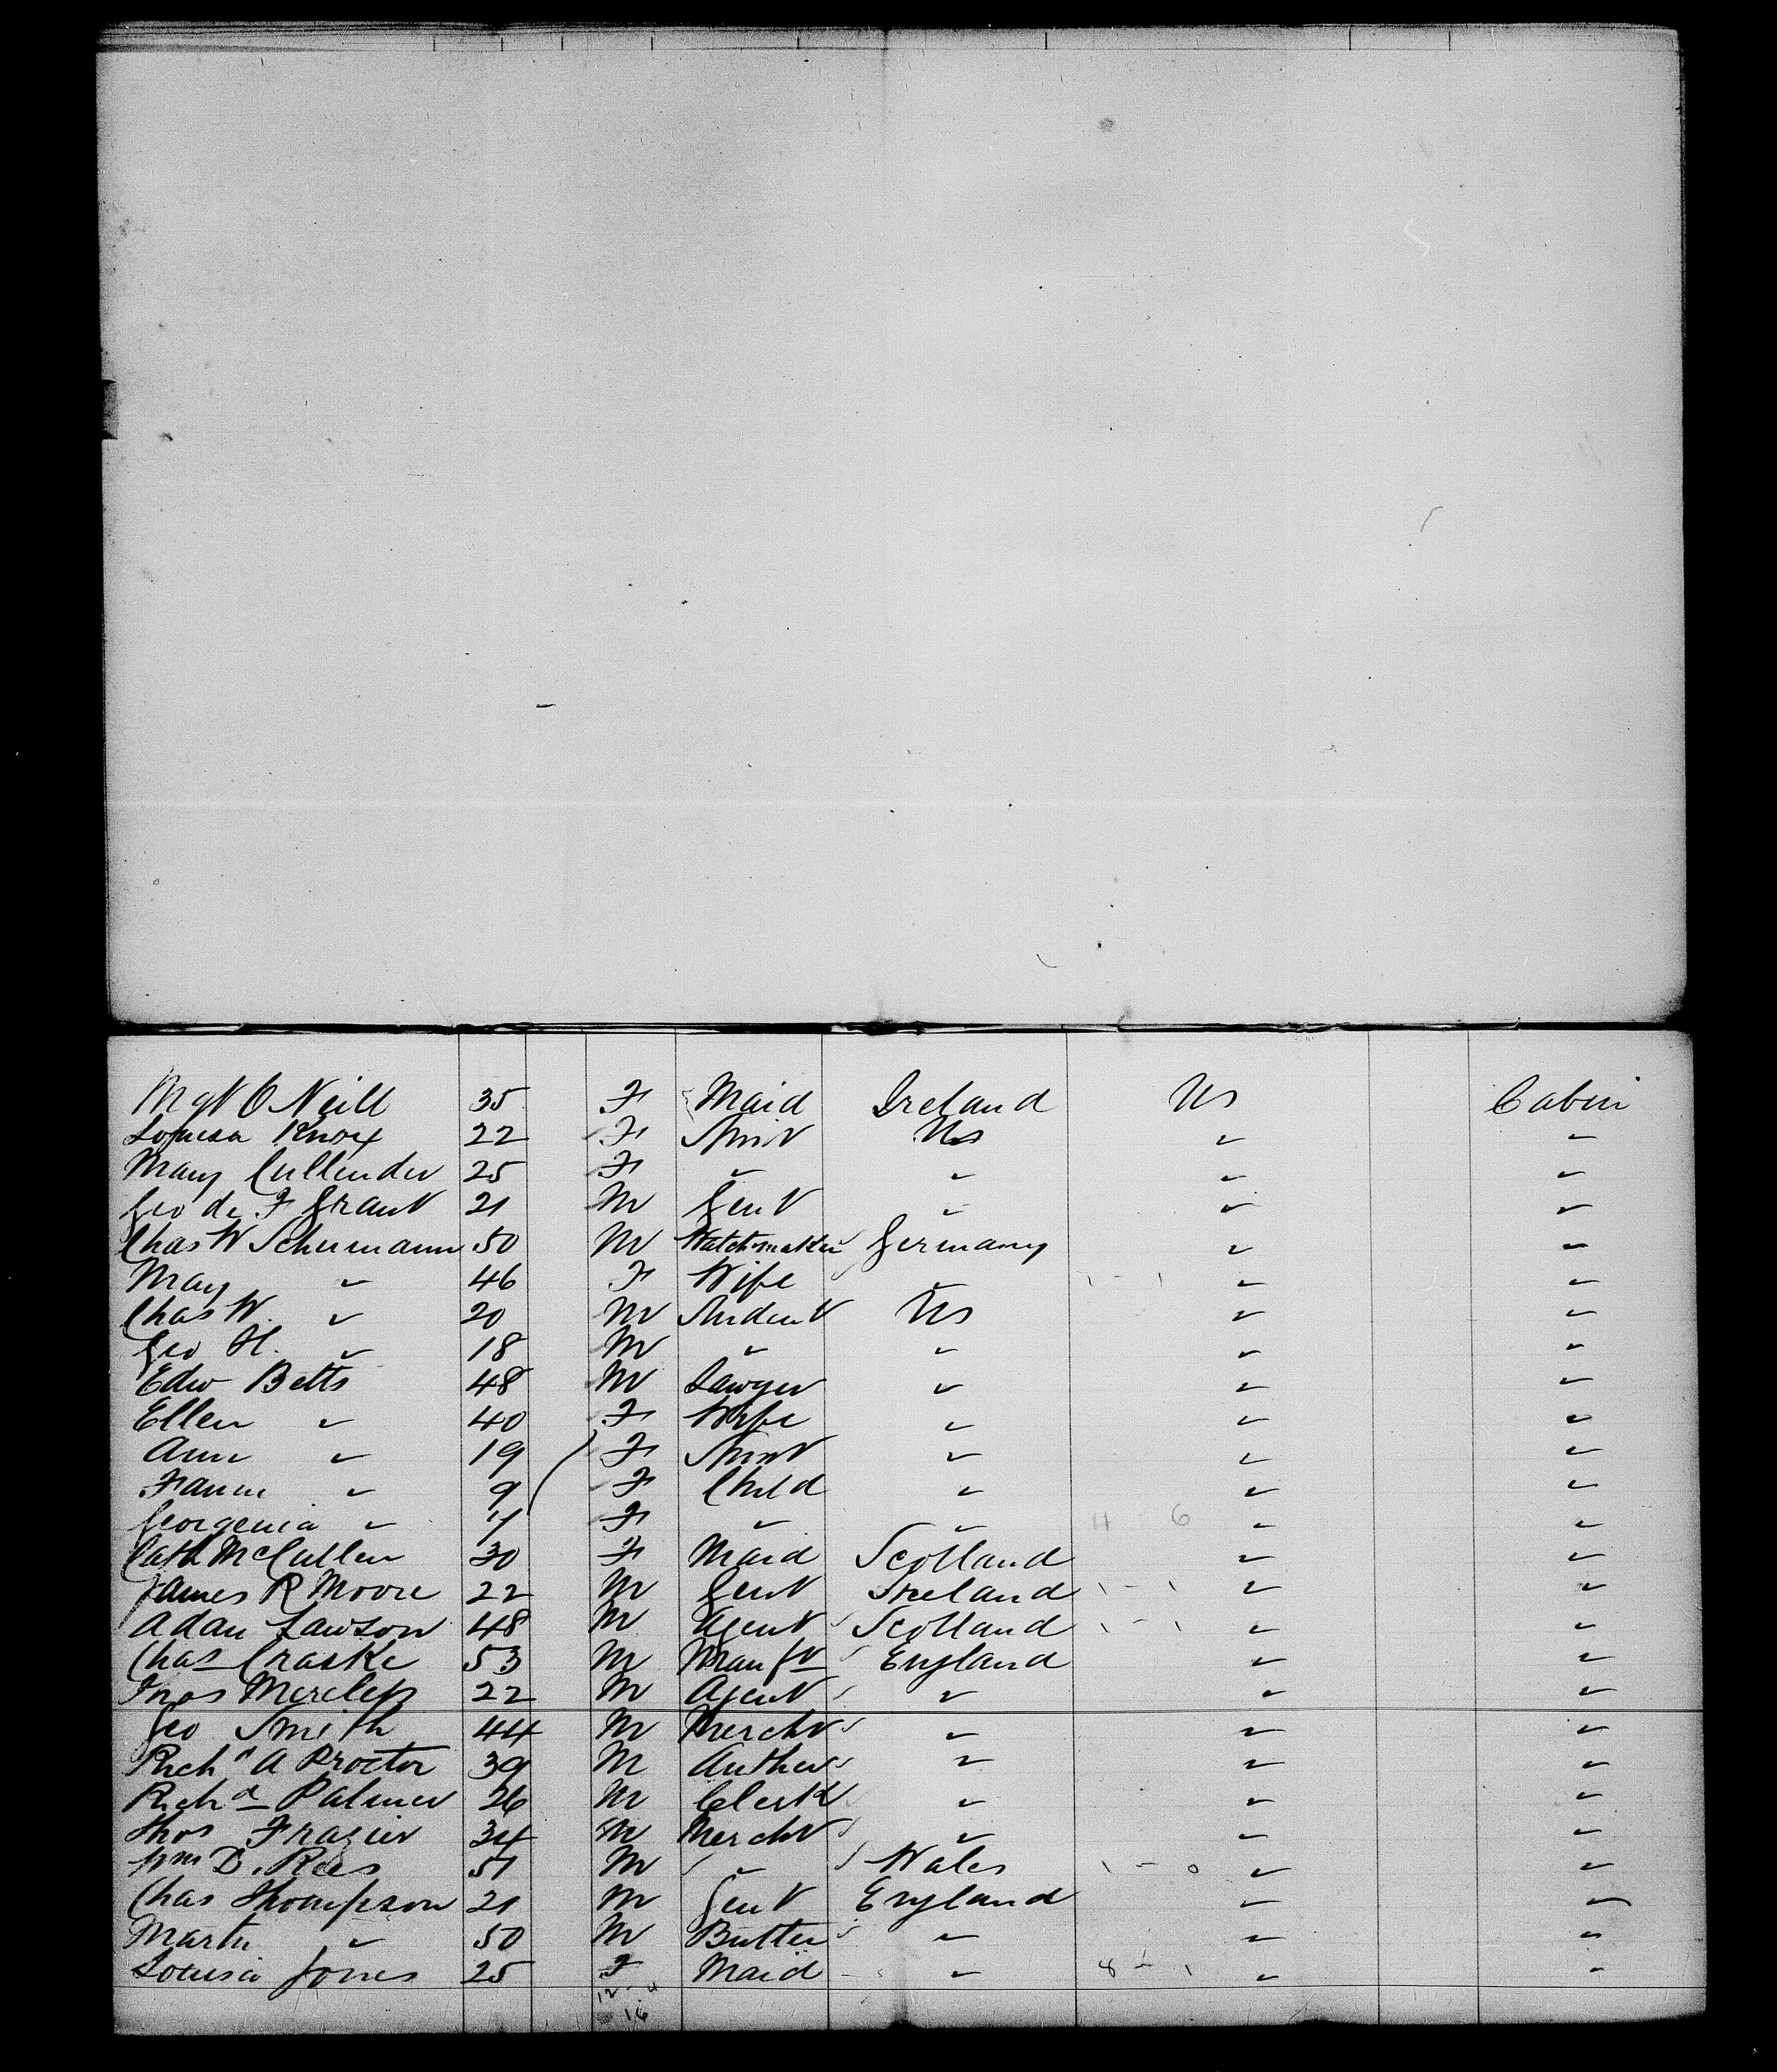 Mgt O Neill 35 F Maid Ireland Us Cabin
Louisa Knox 22 F Spinst Us " "
Mary Cullender 25 F " " " "
Geo de F Grant 21 M Gent " " "
Chas W Schumann 50 M Watchmaker Germany " "
Mary " 46 F Wife " " "
Chas W. " 20 M Student Us " "
Geo H. " 18 M " " " "
Edw Betts 48 M Lawyer " " "
Ellen " 40 F Wife " " "
Ann " 19 F Spinst " " "
Fannie " 9 F Child " " "
Georgenia " 7 F " " 4 - 6 " "
Cath McCullen 30 F Maid Scotland " "
James R Moore 22 M Gent Ireland 1 - 1 " "
Adam Lawson 48 M Agent Scotland 1 - 1 " "
Chas Craske 53 M Manfr England " "
22 M Agent " " "
Geo Smith 44 M Mercht " " "
Richd A Proctor 39 M Auther " " "
Richd Palmer 26 M Clerk " " "
Thos Frazier 34 M Mercht " " "
Wm D. Rees 51 M " Wales 1 - 0 " "
Chas Thompson 21 M Gent England " "
Martin " 50 M Butler " " "
Louisa Jones 25 F Maid " 8 - 1 " "
12 - 4
16